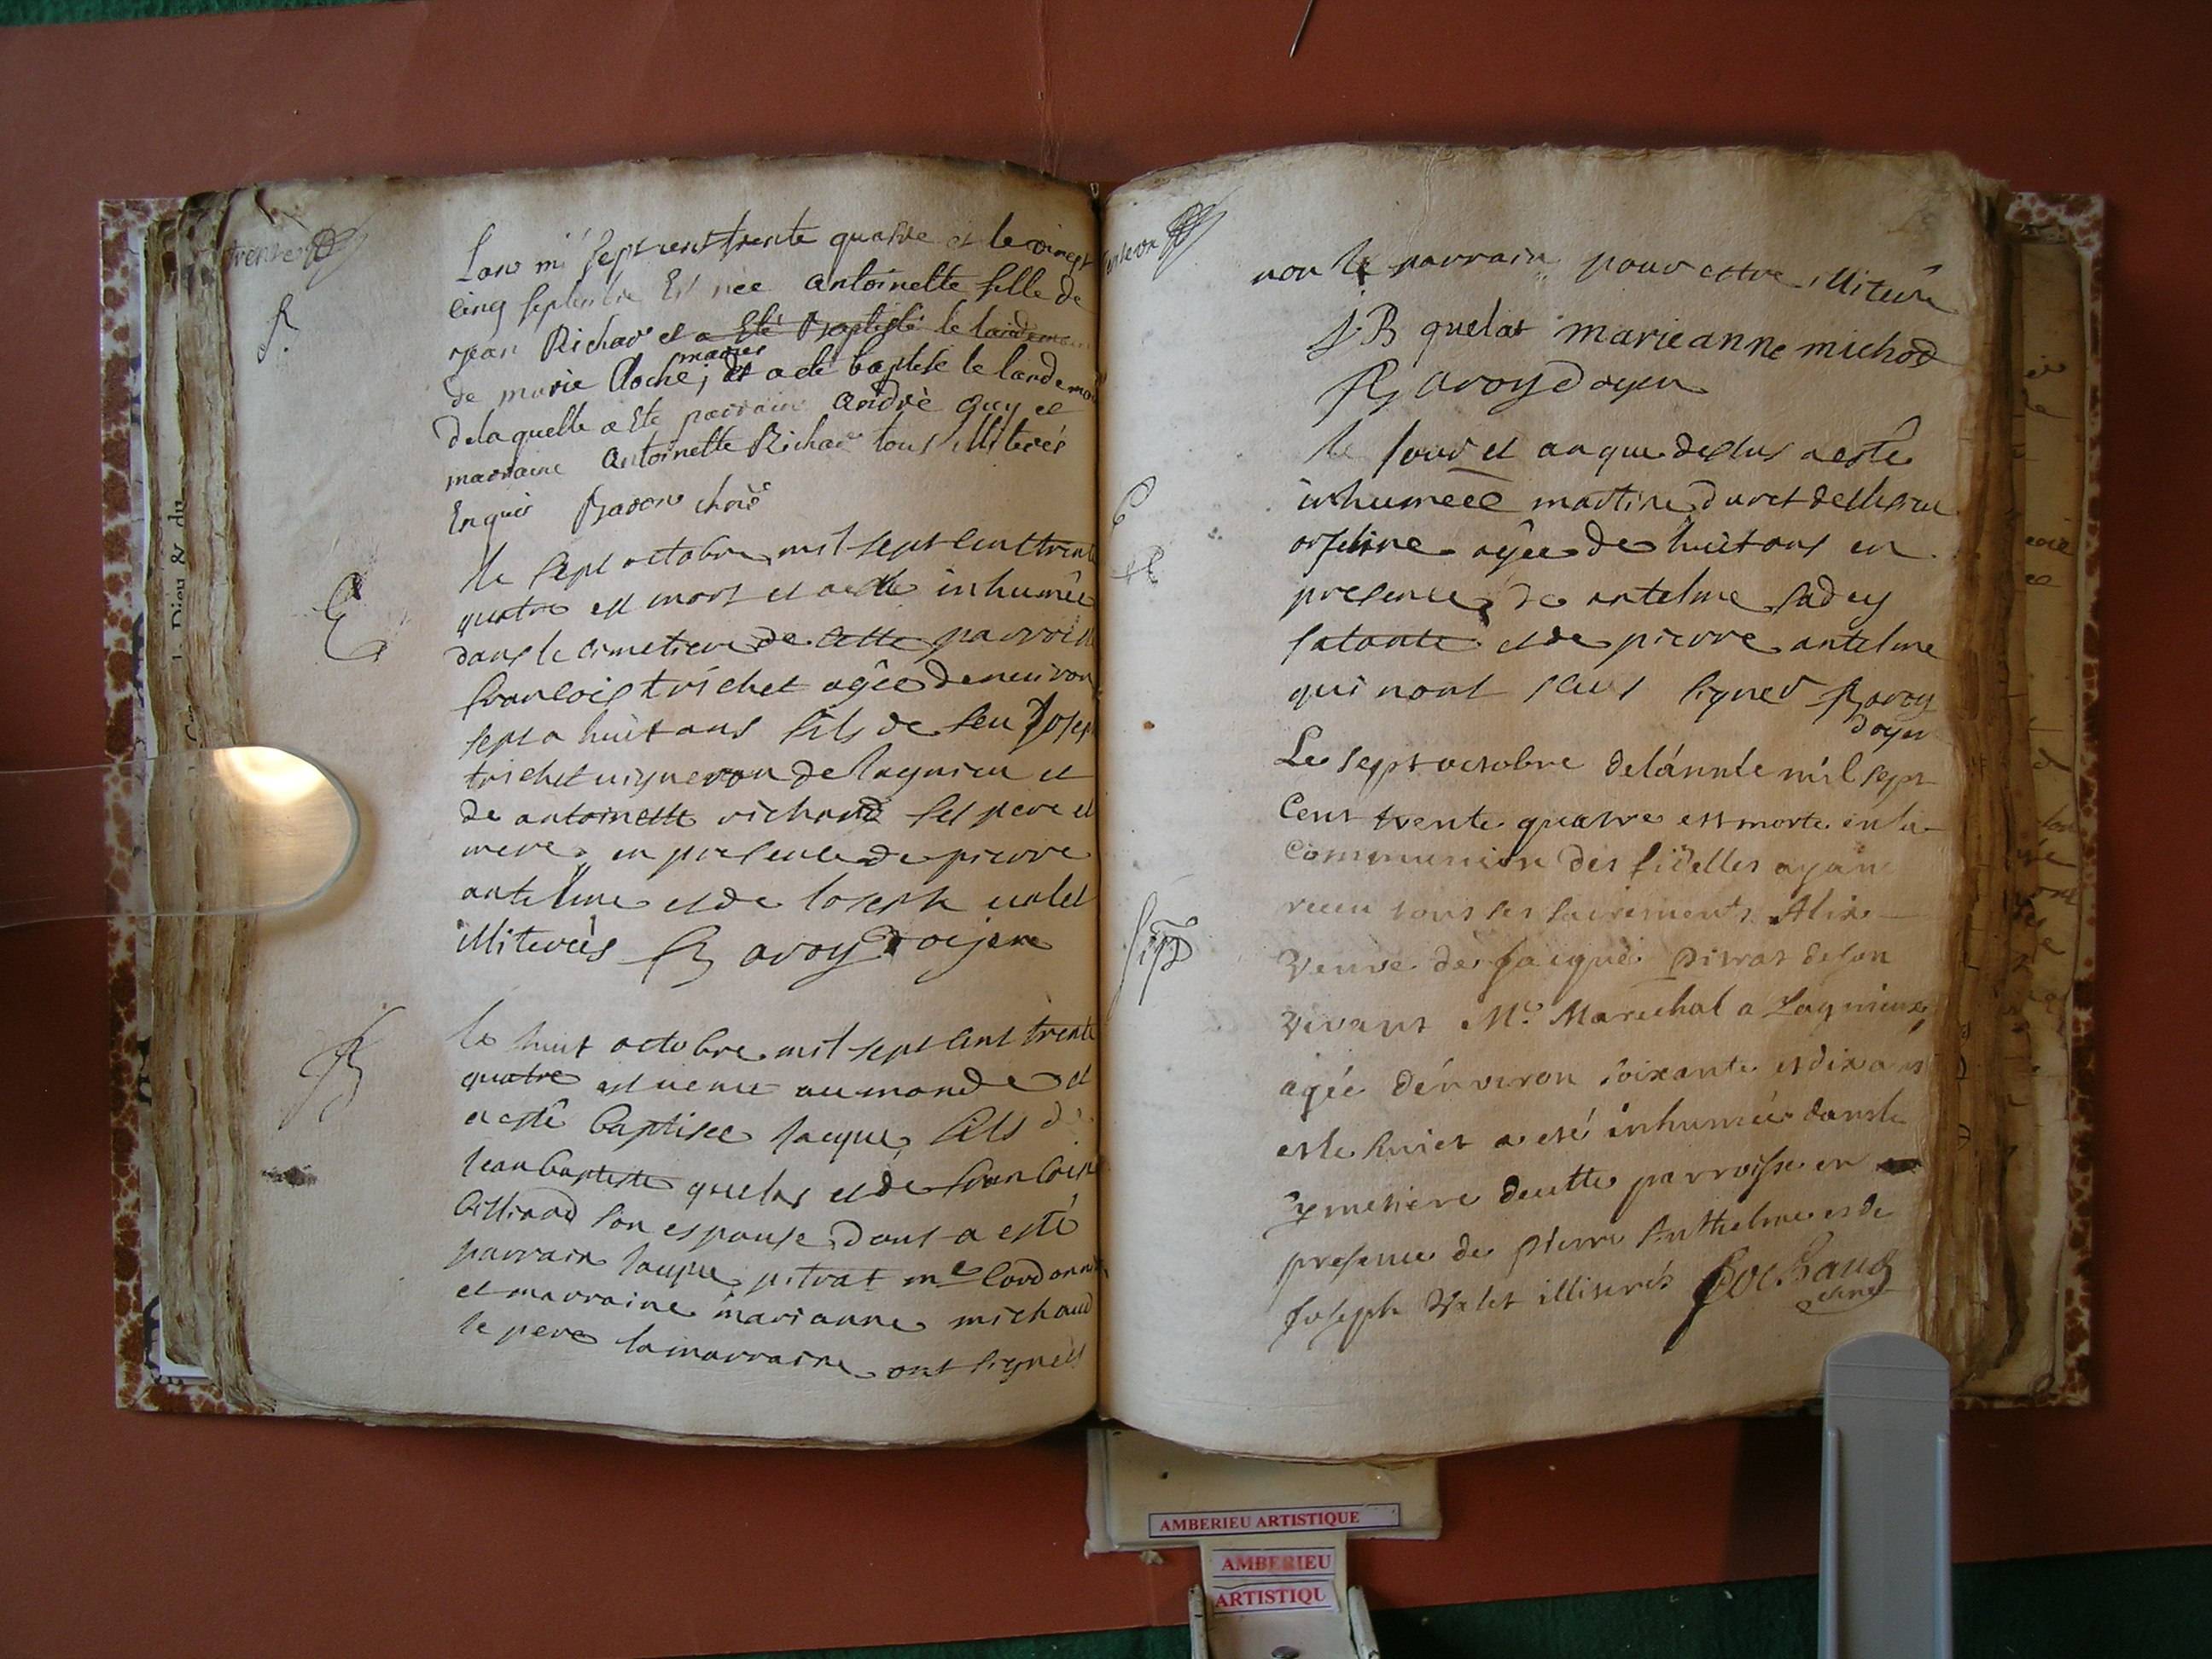 trente
Lan mil sept cent trente quatre et le vingt
cinq septembre Est née Antoinette fille de
jean Richar et a Eté Baptisé le landemain
de marie Cloche, mariés et a eté baptisé le landemain
de laquelle a Eté parrain André Guy et
marraine Antoinette Richar tous illiterés
Enquis
le sept octobre mil sept cent trente
quatre est mort et a esté inhumée
dans le cimetiere de cette parroisse
francois trichet agée denuiron
sept a huit ans fils de feu Joseph
trichet uigneron de lagnieu et
de antoinette richard ses pere et
mere en presence de pierre
antelme et de Joseph ualet
illiterés Ravoy doyen
B
le huit octobre mil sept cent trente
quatre est uenu au monde et
a esté baptisee Jacque fils de
Jean baptiste quelat et de francoise
son espouse dont a esté
parrain Jacque pitrat me Cordonnier
et marraine marianne michaud
le pere la marraine ont signés
trente un
non le parrain pour estre illiteré
J B quelat marie anne michod
Ravoy doyen
le Jour et an que dessus a esté
inhumeée martine duret
orfeline agée de huit ans en
presence de antelme
la tante et de pierre antelme
qui nont sceu signer Ravoy
doyen
Sep
Le sept octobre de l'année mil sept
Cent trente quatre est morte en la
Communion des fidelles ayan
receu tous ses sacrements Alix
Veuve de Jacque Pitrat de son
Vivant Me. Marechal a Lagnieux,
agée d'énviron soixante et dix ans
et le huict a eté inhumée dans le
Zymetiere de cette parroisse en
presence de pierre Anthelme et de
Joseph Valet illiterés Rochand
AMBERIEU ARTISTIQUE
AMBERIEU
ARTISTIQU